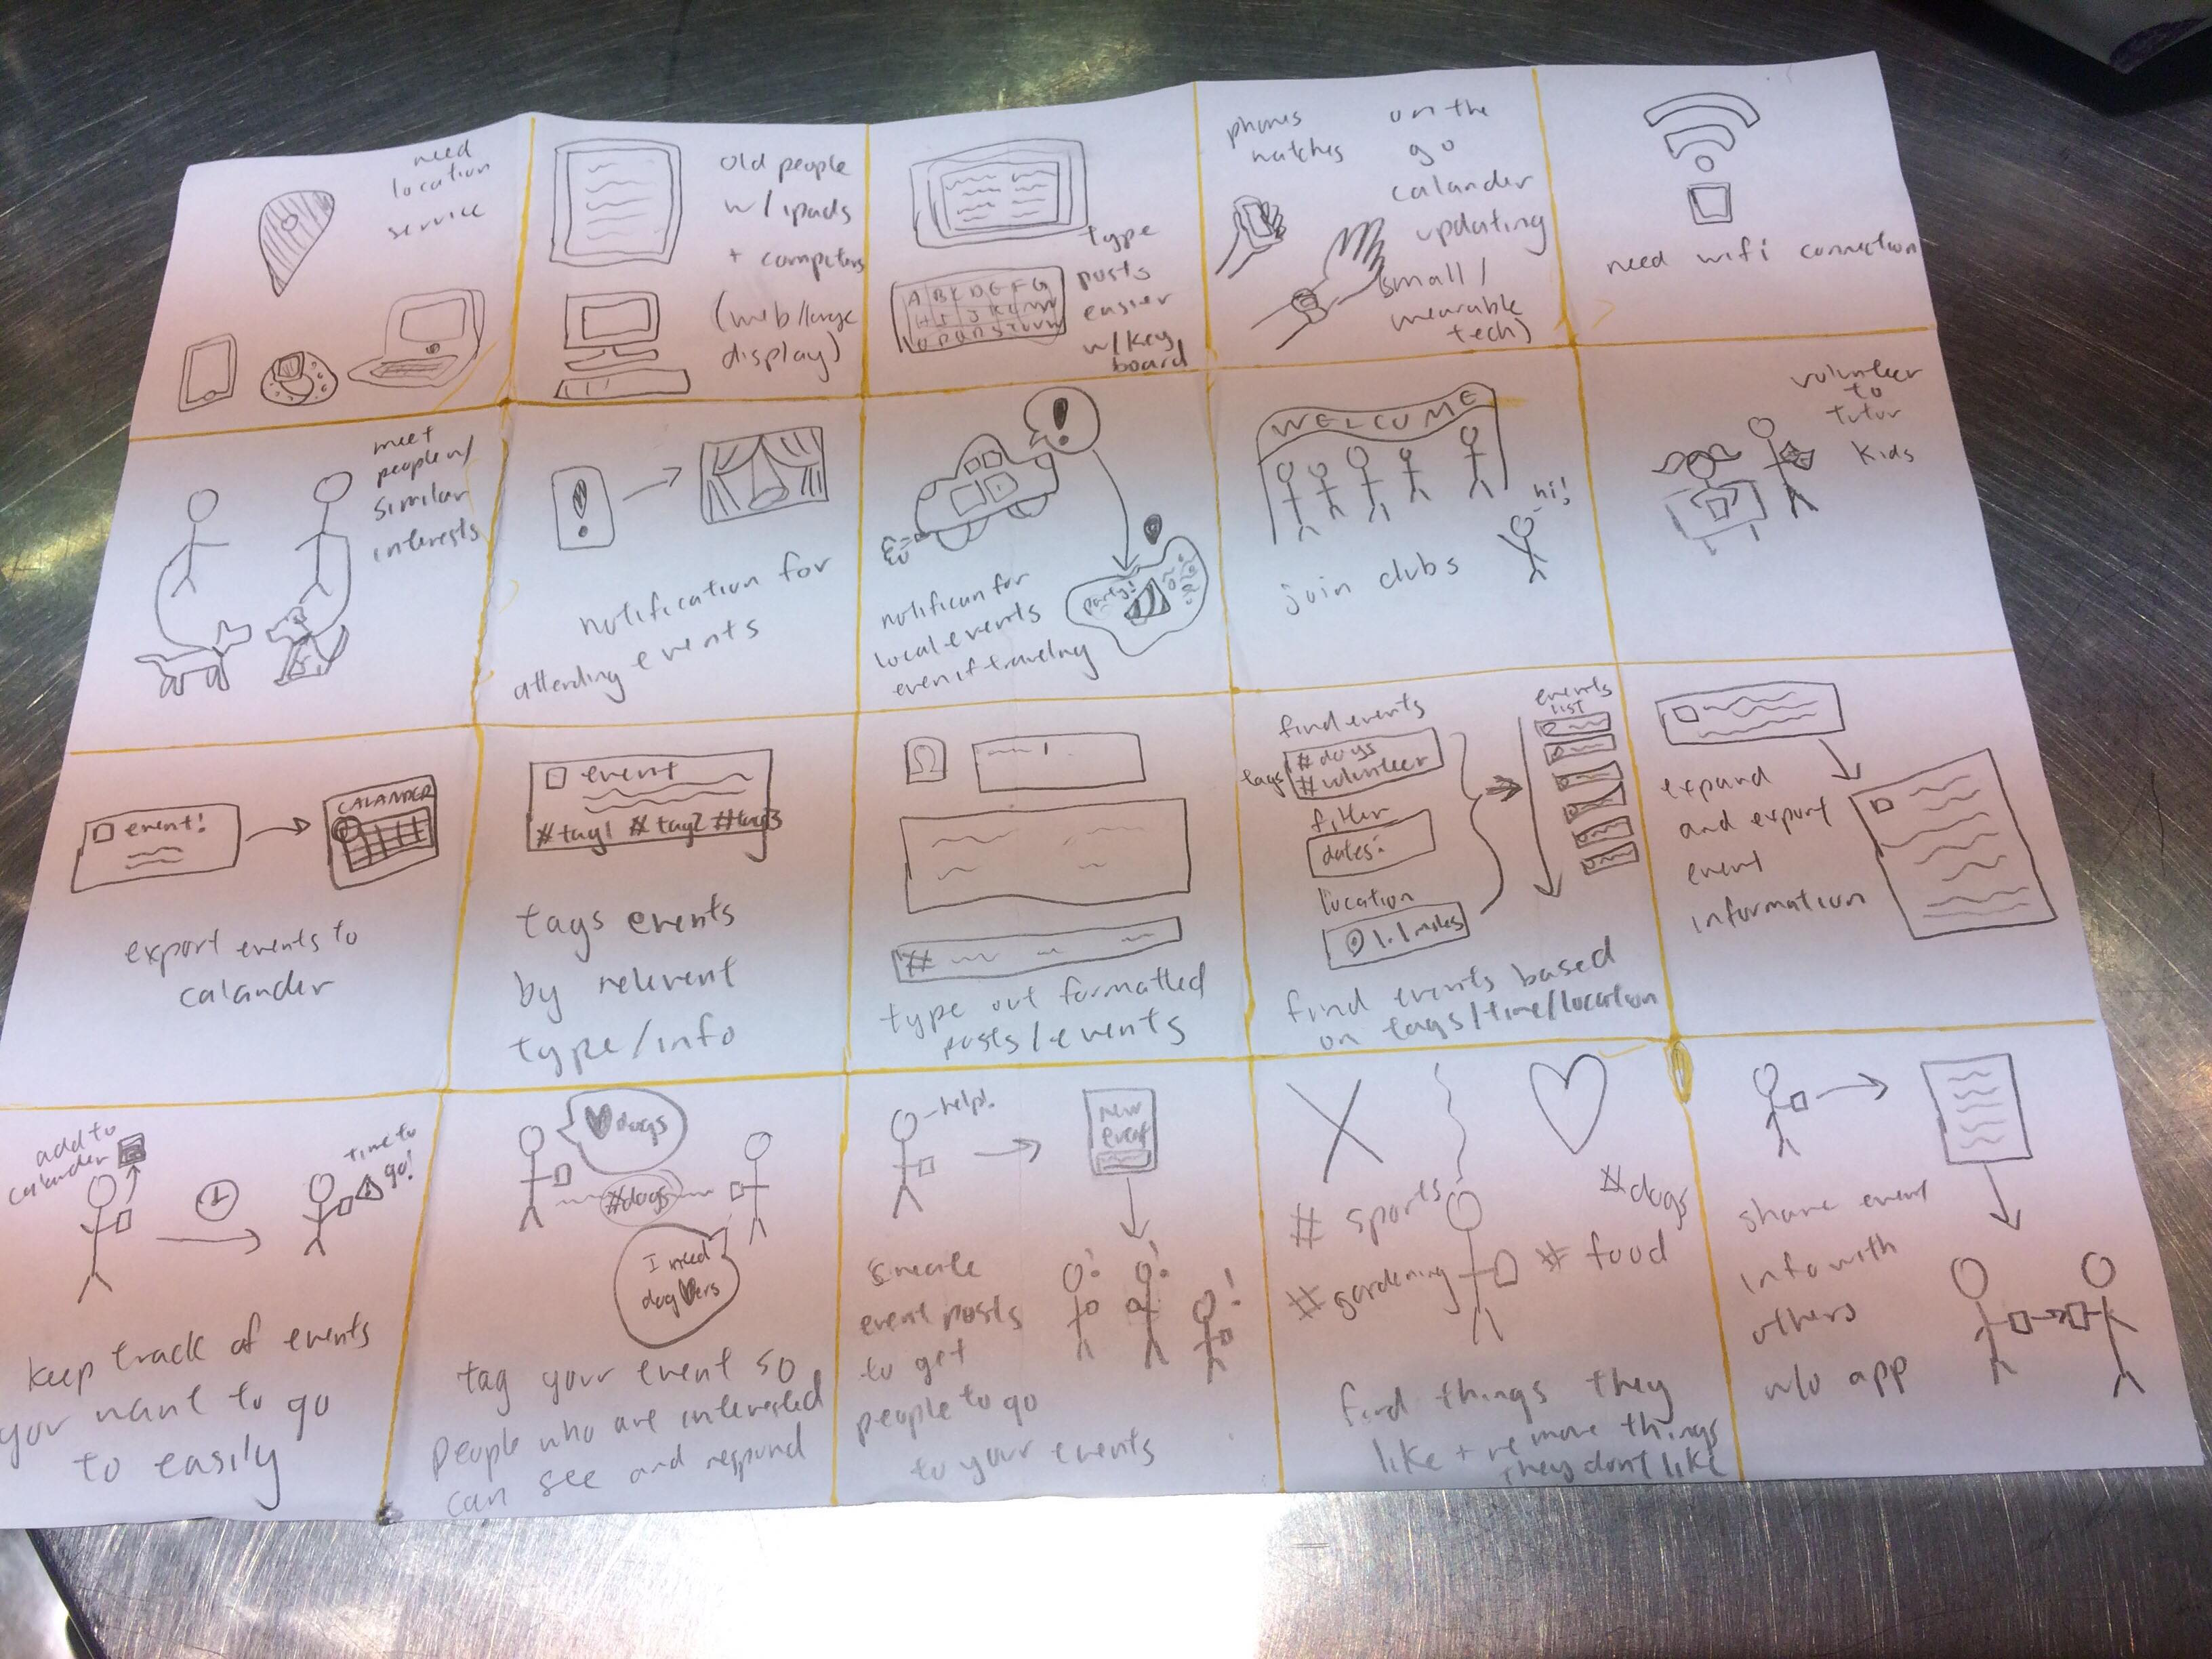 need
location
service
old people
w/ ipads
+ computers
(web/large
display)
A B C D E F G
type
posts
easier
w/key
board
phones
watches
on the
go
calander
updating
(small/
wearable
tech)
need wifi connection
meet
people w/
similar
interests
!
notification for
attending events
!
party!
local events
even if traveling
WELCOME
hi!
join clubs
volunteer
to
tutor
kids
event!
CALANDER
export events to
calander
event
#tag1 #tag2 #tag3
tags events
by relevent
type/info
#
type out formatted
posts/events
find events
tags
#dogs
#volunteer
filter
dates:
location
1.1 miles
events
list
find events based
on tags/time/location
expand
and export
event
information
add to
calander
time to
go!
keep track of events
you want to go
to easily
dogs
#dogs
I need
tag your event so
people who are interested
can see and respond
help!
new
event
! ! !
create
event posts
to get
people to go
to your events
# sports
#dogs
#gardening
# food
find things they
like + remove things
they dont like
share event
info with
others
w/o app